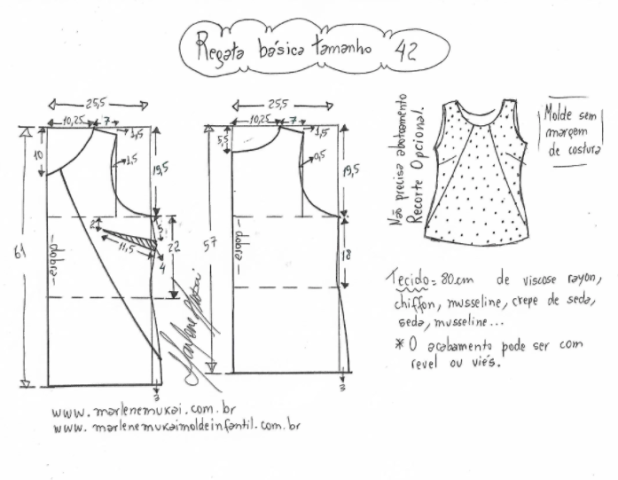 Regata básica tamanho 42
25,5
10,25
7
1,5
10
1,5
19,5
61
dobra
2
11,5
4
22
3
25,5
10,25
7
1,5
5,5
0,5
19,5
57
dobra
18
3
Não precisa abotoamento
Recorte Opcional.
Molde sem
margem
de costura
Tecido = 80cm de viscose rayon,
chiffon, musseline, crepe de seda,
seda, musseline...
* O acabamento pode ser com
revel ou viés.
Marlene Mukai
www.marlenemukai.com.br
www.marlenemukaimoldeinfantil.com.br